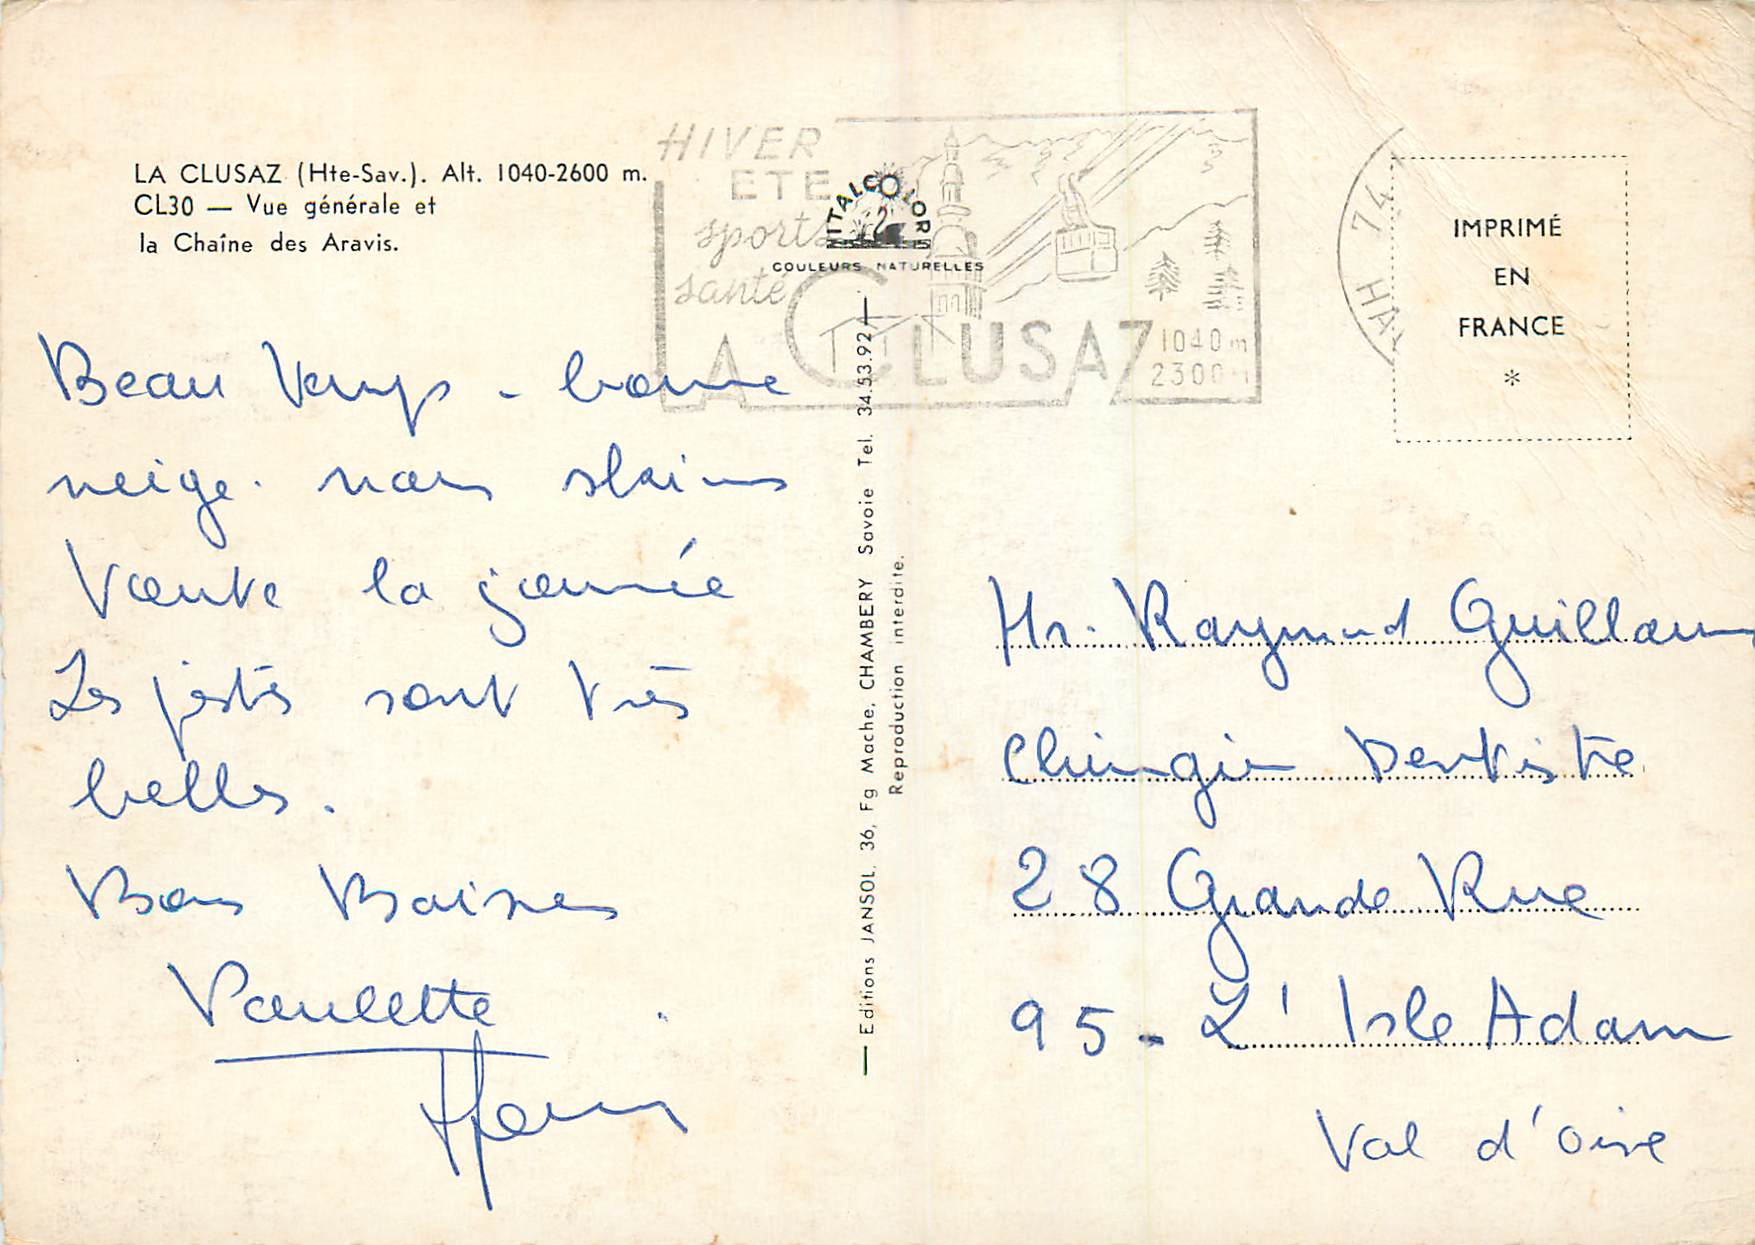 LA CLUSAZ (Hte-Sav.). Alt. 1040-2600 m.
CL30 — Vue générale et
la Chaîne des Aravis.
HIVER
ETE
sports
santé
LA CLUSAZ
1040 m
2300 m
ITALCOLOR
COULEURS NATURELLES
74
HA
IMPRIMÉ
EN
FRANCE
*
Beau temps - bonne
neige. nous skions
toute la journée
Les pistes sont très
belles.
Bons Baisers
Paulette
— Editions JANSOL, 36, Fg Mache, CHAMBERY Savoie Tel. 34.53.92 —
Reproduction interdite.
Mr. Raymond Guillaum
Chirurgien Dentiste
28 Grande Rue
95 - L'Isle Adam
Val d'oise